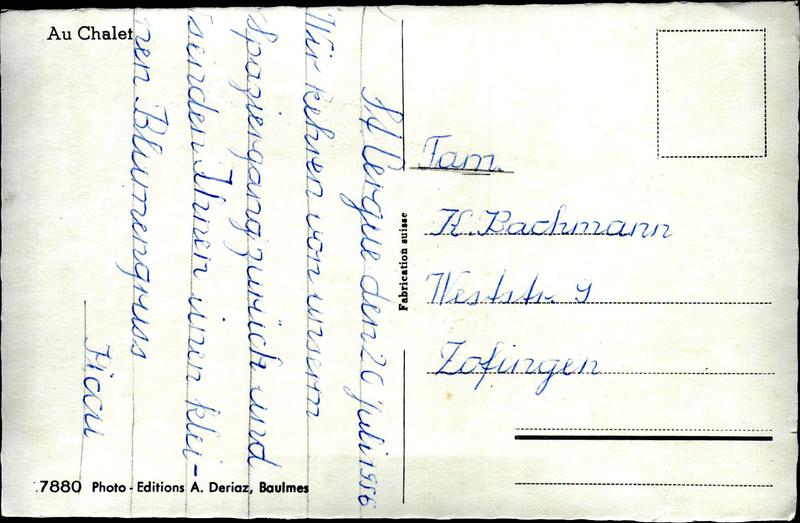 Au Chalet
St Cergue den 20 Juli 1956
Wir kehren von unserm
Spaziergang zurück und
senden Ihnen einen klei-
nen Blumengruss
7880 Photo-Editions A. Deriaz, Baulmes
Fabrication suisse
Fam.
K. Bachmann
Weststr. 9
Zofingen